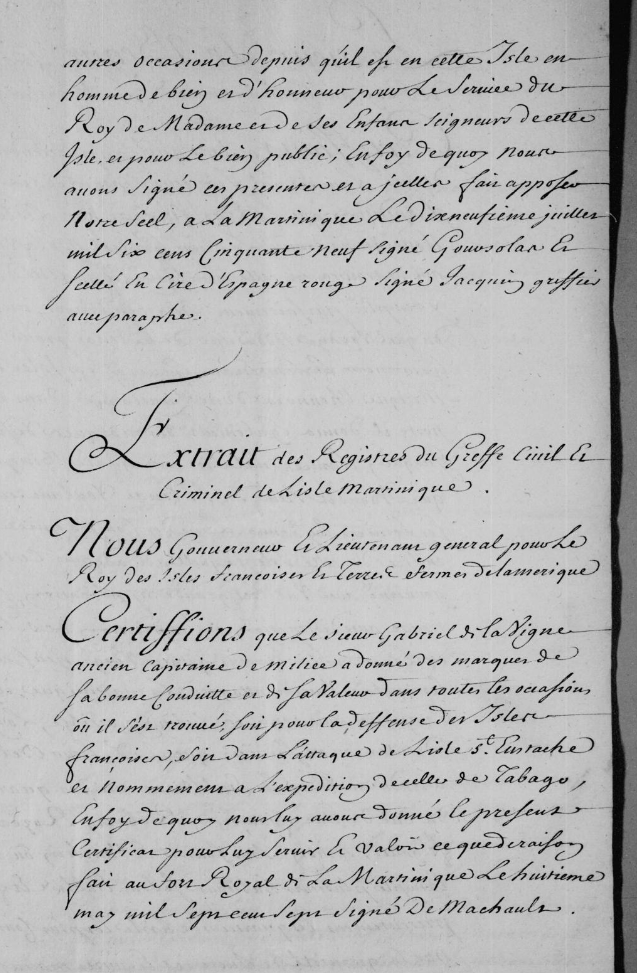 autres occasions depuis qu'il est en cette Isle en
homme de bien et d'honneur pour Le Service du
Roy de Madame et de Ses Enfans Seigneurs de cette
Isle, et pour Le bien public; Enfoy de quoy nous
avons Signé ces presentes et a jcelles fait apposer
Notre Scel, a La Martinique Le dixneufiéme juillet
mil Six cens Cinquante neuf Signé Gourselas Et
Scellé En Cire d'Espagne rouge Signé Jacquin greffier
avec paraphe.
Extrait des Registres du Greffe Civil Et
Criminel de Lisle Martinique.
Nous Gouverneur Et Lieutenant general pour Le
Roy des Isles francoises Et Terre fermes delamerique
Certiffions que Le sieur Gabriel de la Vigne
ancien Capitaine de milice a donné des marques de
sa bonne Conduitte et de Sa Valeur dans toutes les occasions
ou il s'est trouvé, soit pour la deffense des Isles
francoises, soit dans L'attaque de Lisle St. Eustache
et Nommement a L'expedition decelle de Tabago,
Enfoy de quoy nous luy avons donné le present
Certificat pour Luy Servir Et Valoir ce que de raison
fait au fort Royal de La Martinique Le huitieme
may mil Sept cent Sept Signé De Machault.